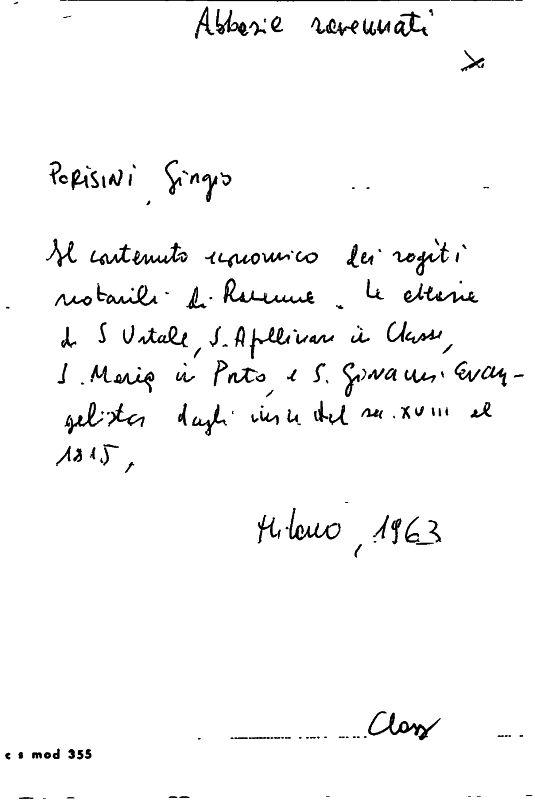 Abbazie ravennati
PORISINI, Giorgio
Il contenuto economico dei rogiti
notarili di Ravenna. Le abbazie
di S Vitale, S. Apollinare in Classe,
S. Maria in Porto, e S. Giovanni Evan-
gelista dagli inizi del sec. XVIII al
1815,
Milano, 1963
Class
c s mod 355